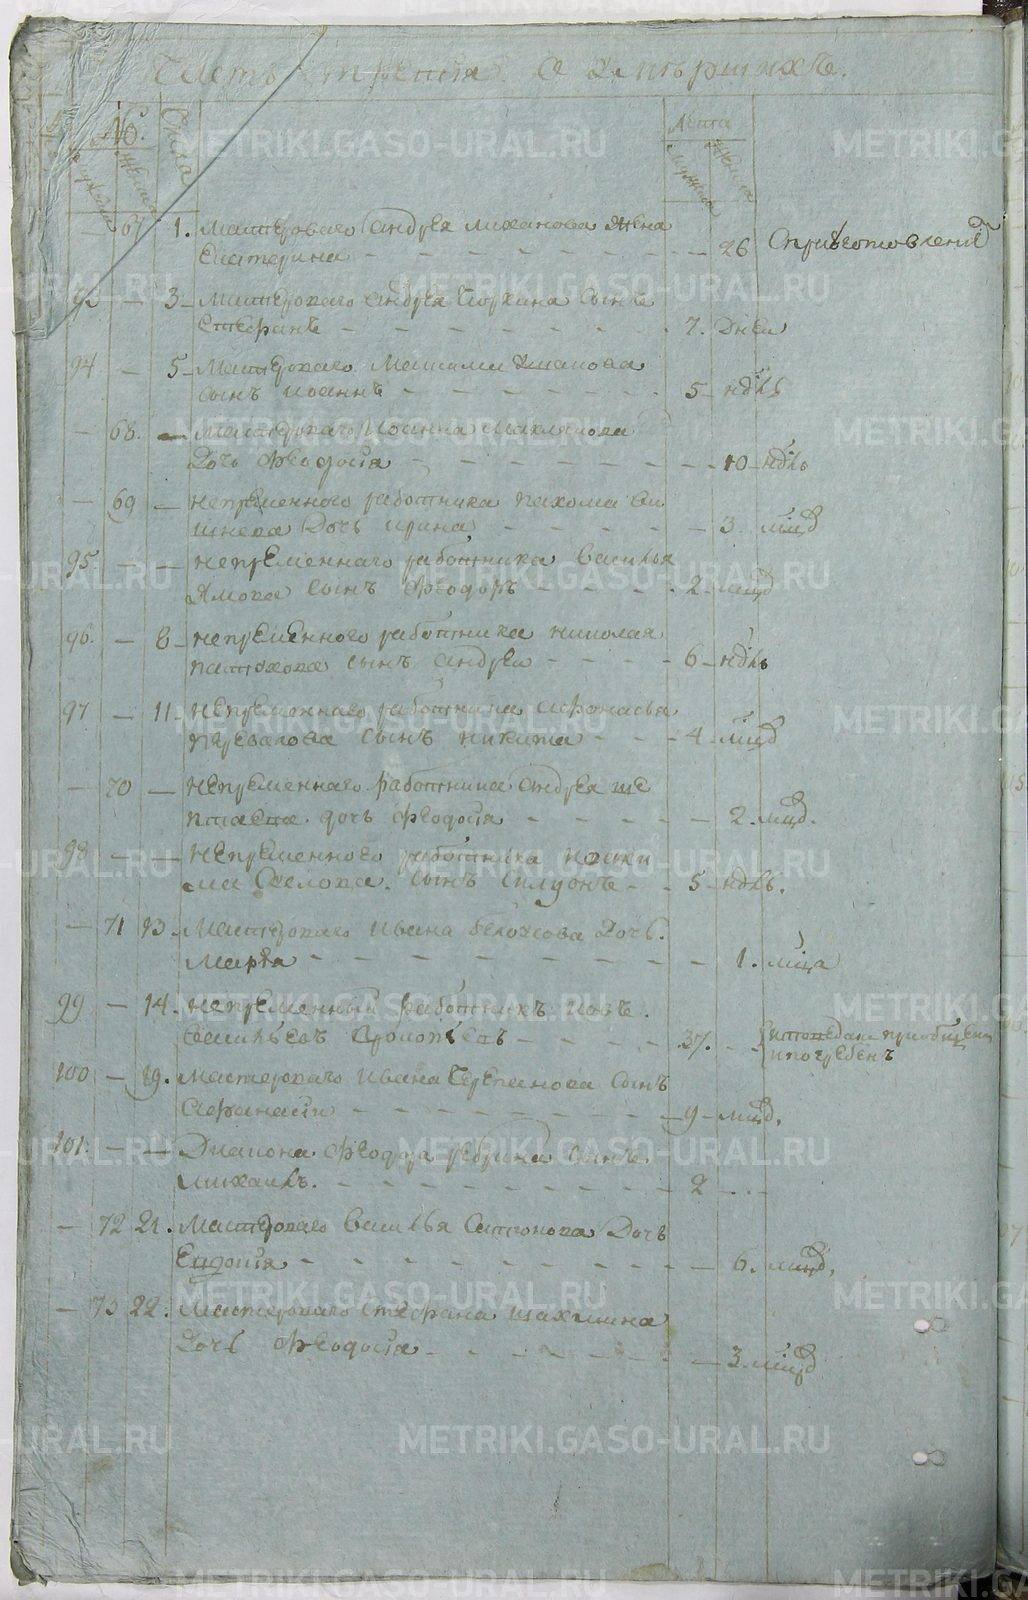 Часть третія О Умѣршихъ.
№. Числа Лѣта
мужеска женска мужеска женска
— 67 1. Мастероваго Андрея Лиханова жена
Екатерина — 26 Сприготовленiѣ
92 — 3 Мастероваго Андрея сынъ
Стефанъ 7. Дней
94 — 5 Мастероваго Ушакова
сынъ Иоаннъ 5 — ндѣль
— 68. — Мастероваго Иоанна
Дочь Феодосiя — 10 ндѣль
— 69 — непременного работника пахома ви
шнева Дочь ирина — 3 мцд
95. — — непременнаго работника Василья
Ямова Сынъ Феодоръ 2 мцд
96. — 8 непременного работника николая
пастухова сынъ андрей 6 — ндѣль
97 — 11 непременнаго работника Афонасья
перевалова сынъ никита 4 — мцд
— 70 — непременнаго работника Андрея ше
птаева дочь Феодосiя — 2. мцд.
98 — — непременного работника иоаки
ма Белова. сынъ Силуанъ 5 — ндѣль.
— 71 13. Мастероваго Ивана Белоусова Дочь.
Марѳа — 1. мца
99 — 14. непременный работникъ иовъ.
Васильевъ Прокопьевъ 37. — исповедан приобщен
ипогребенъ
100 — 19. Мастероваго Ивана Черепанова Сынъ
Афанасiй 9 — мцд.
101. — — Диакона Феодора Ребрина Сынъ
Михаилъ. 2 ...
— 72 21. Мастероваго Василья Сапонова Дочь
Евдокiя — 6. мцд.
— 73 22. Мастероваго Стефана Шахмина
Дочь Феодосiя — 3. мцд
METRIKI.GASO-URAL.RU